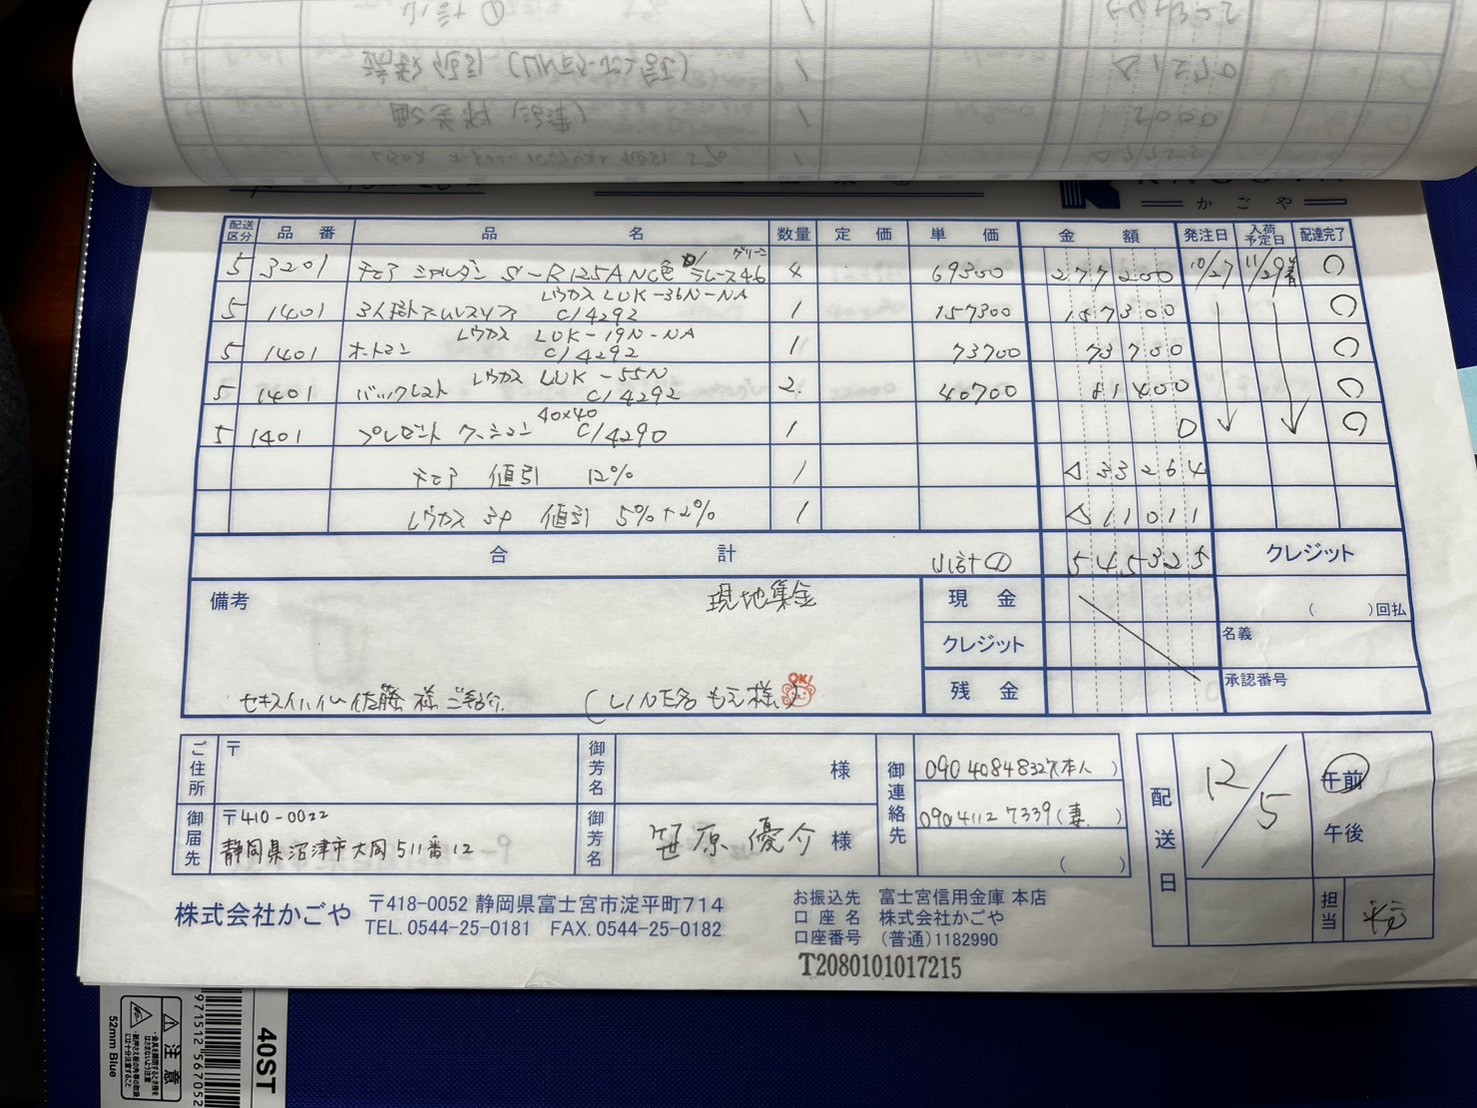 かごや
配送区分 品番 品名 数量 定価 単価 金額 発注日 入荷予定日 配達完了
グリーン
5 3201 チェア ミアルダン S-R125A NC色 ラレース46 4 69300 277200 10/27 11/29着 ○
レウカス LUK-36N-NA
5 1401 3人掛アームレスソファ C/4292 1 157300 157300 ○
レウカス LUK-19N-NA
5 1401 オットマン C/4292 1 73700 73700 ○
レウカス LUK-55N
5 1401 バックレスト C/4292 2 40700 81400 ○
40×40
5 1401 プレゼント クッション C/4290 1 0 ○
チェア 値引 12% 1 △33264
レウカス 値引 5%+2% 1 △11011
合計 小計① 545325 クレジット
備考 現地集金 現金 ( )回払
クレジット 名義
残金 承認番号
セキスイハイム佐藤様ご紹介 (LINE名 もえ様) OK!
ご住所 〒 御芳名 様 御連絡先 090 4084 8327(本人)
090 4112 7339(妻)
( )
御届先 〒410-0022
静岡県沼津市大岡511番12 御芳名 笹原優介 様
配送日 12/5 午前
午後
担当
株式会社かごや 〒418-0052 静岡県富士宮市淀平町714
TEL. 0544-25-0181 FAX. 0544-25-0182
お振込先 富士宮信用金庫 本店
口座名 株式会社かごや
口座番号 (普通)1182990
T2080101017215
40ST
971512 567052
注意
52mm Blue